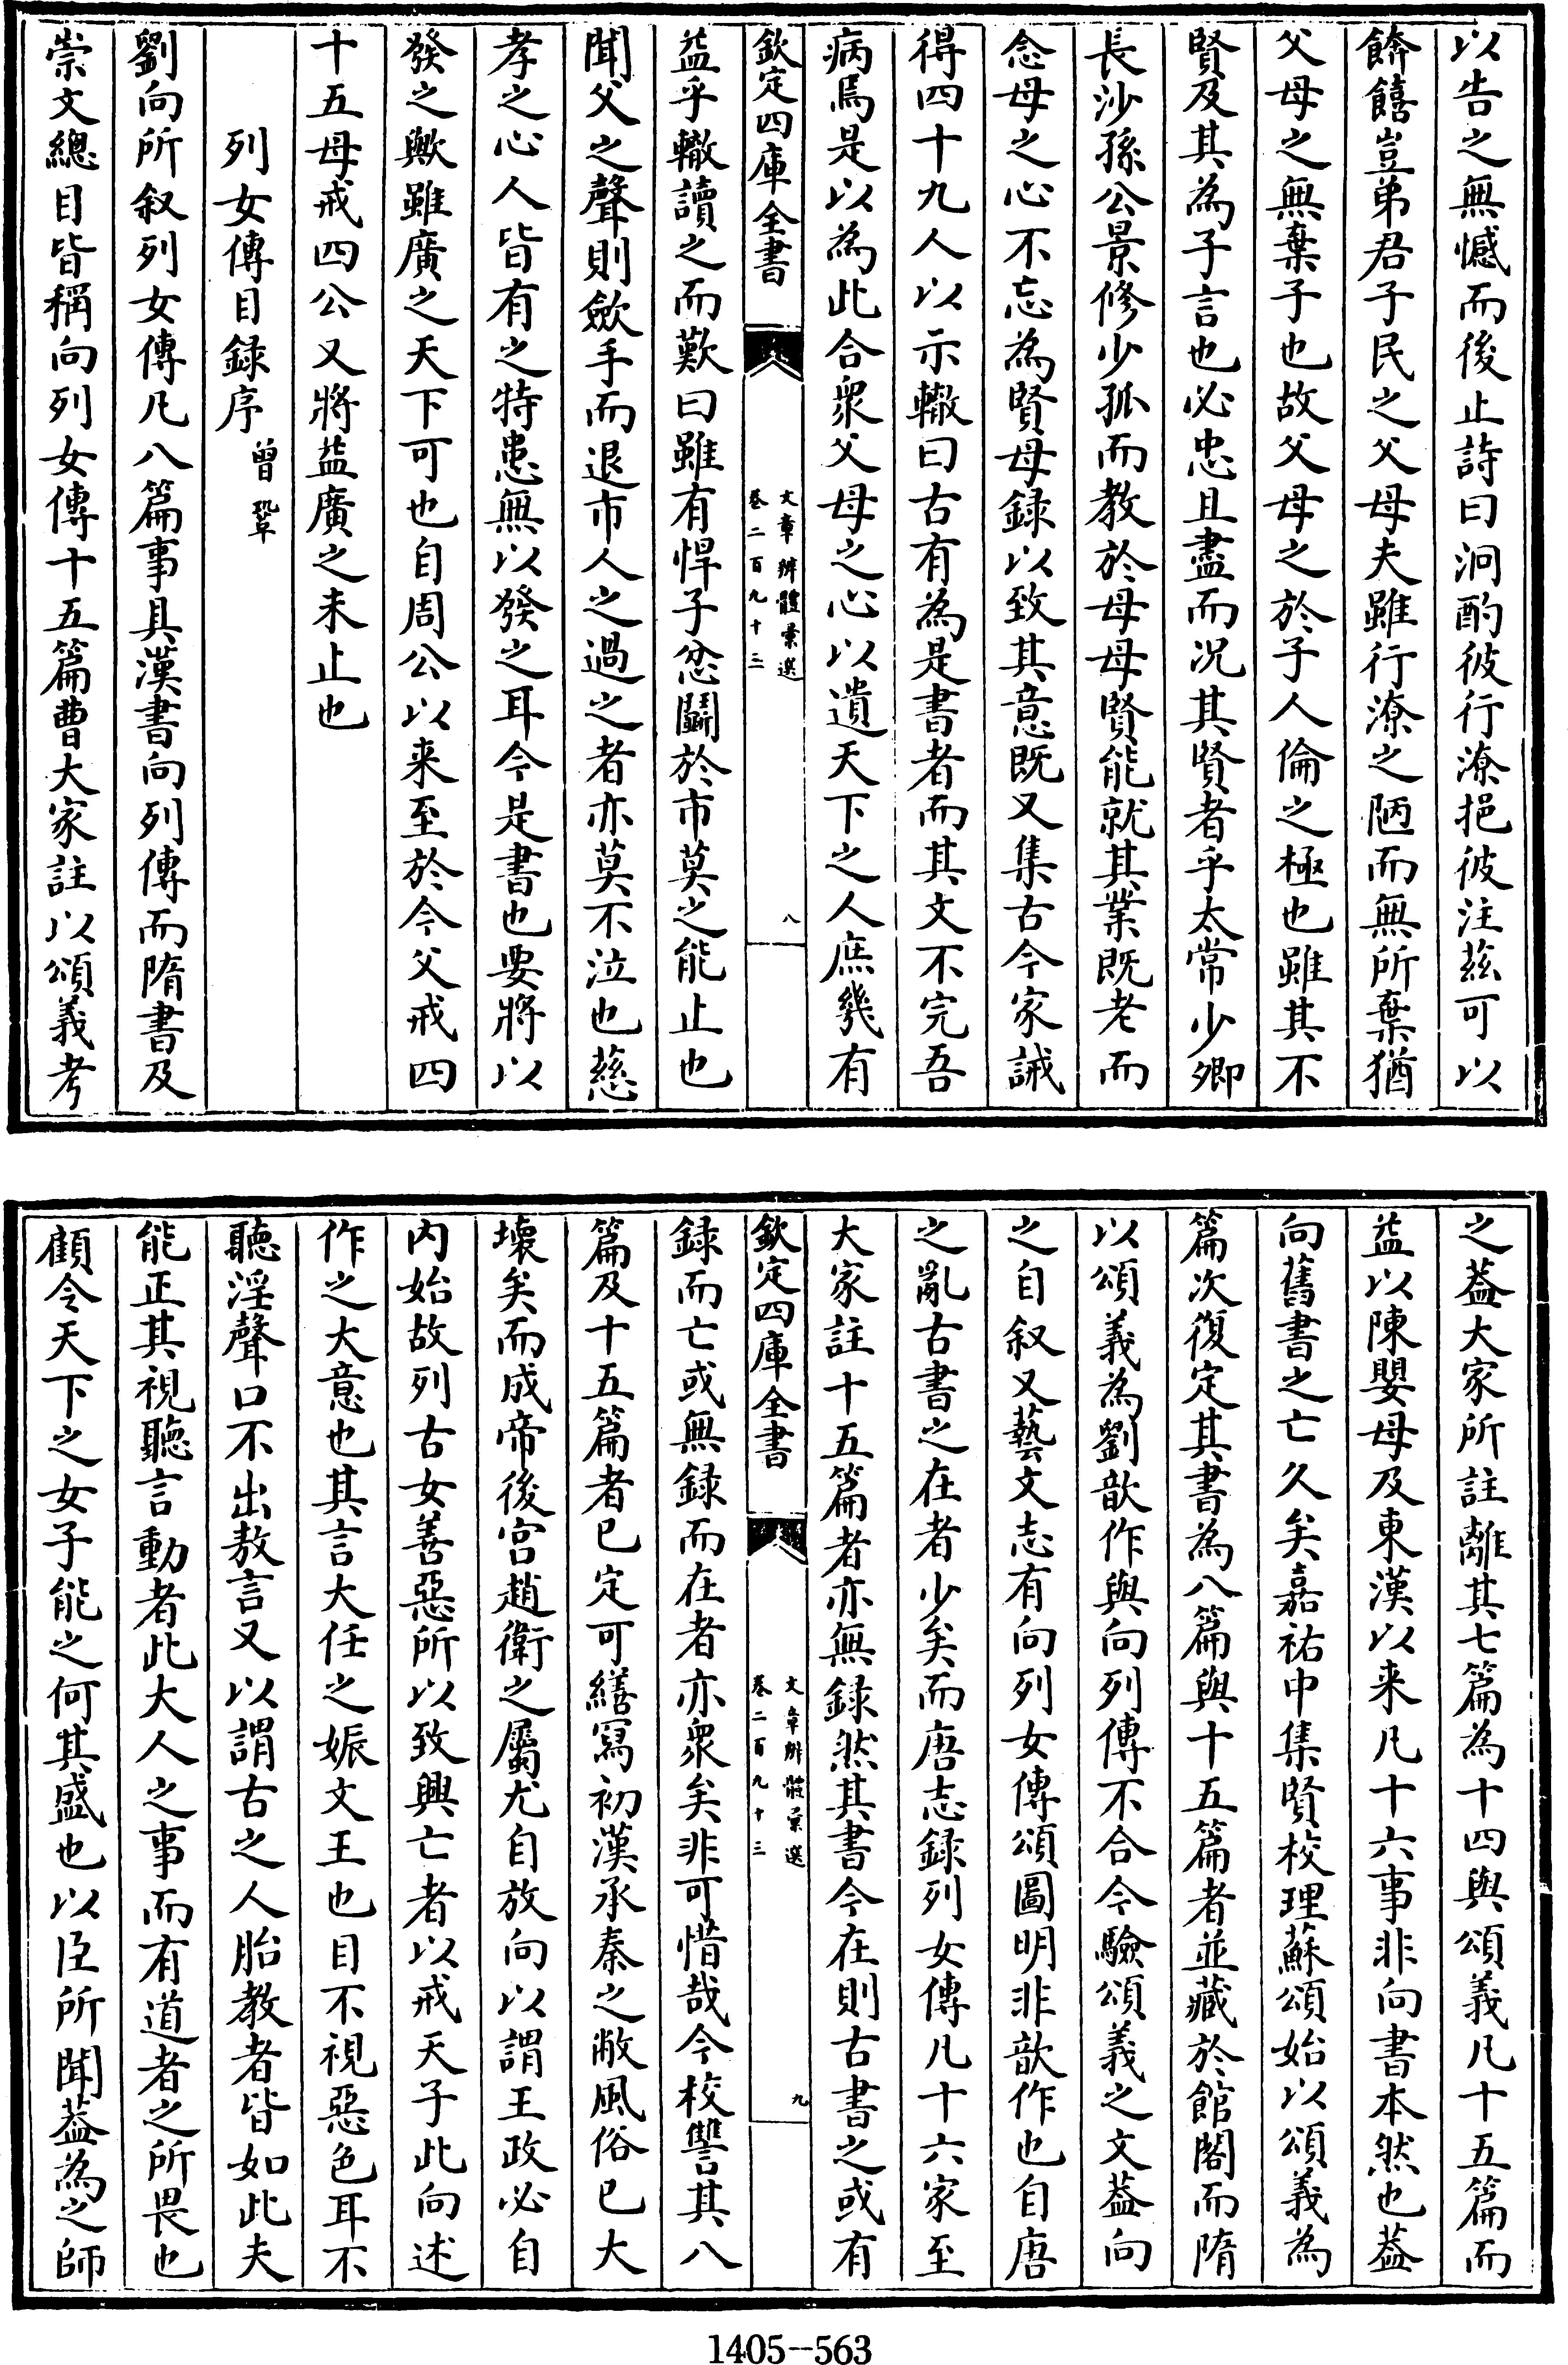 以告之無憾而後止詩曰泂酌彼行潦挹彼注兹可以
餴饎豈弟君子民之父母夫雖行潦之陋而無所棄猶
父母之無棄子也故父母之於子人倫之極也雖其不
賢及其為子言也必忠且盡而况其賢者乎太常少卿
長沙孫公景修少孤而教於母母賢能就其業既老而
念母之心不忘為賢母録以致其意既又集古今家誡
得四十九人以示轍曰古有為是書者而其文不完吾
病焉是以為此合衆父母之心以遺天下之人庶幾有
欽定四庫全書
文章辨體彚選
卷二百九十三
八
益乎轍讀之而歎曰雖有悍子忿鬭於市莫之能止也
聞父之聲則斂手而退市人之過之者亦莫不泣也慈
孝之心人皆有之特患無以發之耳今是書也要將以
發之歟雖廣之天下可也自周公以来至於今父戒四
十五母戒四公又將益廣之未止也
列女傳目録序 曾鞏
劉向所叙列女傳凡八篇事具漢書向列傳而隋書及
崇文總目皆稱向列女傳十五篇曹大家註以頌義考
之葢大家所註離其七篇為十四與頌義凡十五篇而
益以陳嬰母及東漢以来凡十六事非向書本然也葢
向舊書之亡久矣嘉祐中集賢校理蘇頌始以頌義為
篇次復定其書為八篇與十五篇者並藏於館閣而隋
以頌義為劉歆作與向列傳不合今驗頌義之文葢向
之自叙又藝文志有向列女傳頌圖明非歆作也自唐
之亂古書之在者少矣而唐志録列女傳凡十六家至
大家註十五篇者亦無録然其書今在則古書之或有
欽定四庫全書
文章辨體彚選
卷二百九十三
九
録而亡或無録而在者亦衆矣非可惜哉今校讐其八
篇及十五篇者已定可繕寫初漢承秦之敝風俗已大
壞矣而成帝後宫趙衛之屬尤自放向以謂王政必自
内始故列古女善惡所以致興亡者以戒天子此向述
作之大意也其言大任之娠文王也目不視惡色耳不
聽淫聲口不出敖言又以謂古之人胎教者皆如此夫
能正其視聽言動者此大人之事而有道者之所畏也
顧令天下之女子能之何其盛也以臣所聞葢為之師
1405--563